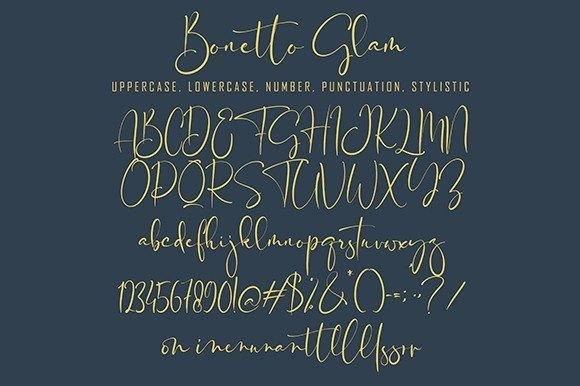 Bonetto Glam
UPPERCASE, LOWERCASE, NUMBER, PUNCTUATION, STYLISTIC
ABCDEFGHIJKLMN
OPQRSTUVWXYZ
abcdefhijklmnopqrstuvwxyz
1234567890!@#$%&*()-=:;,?/